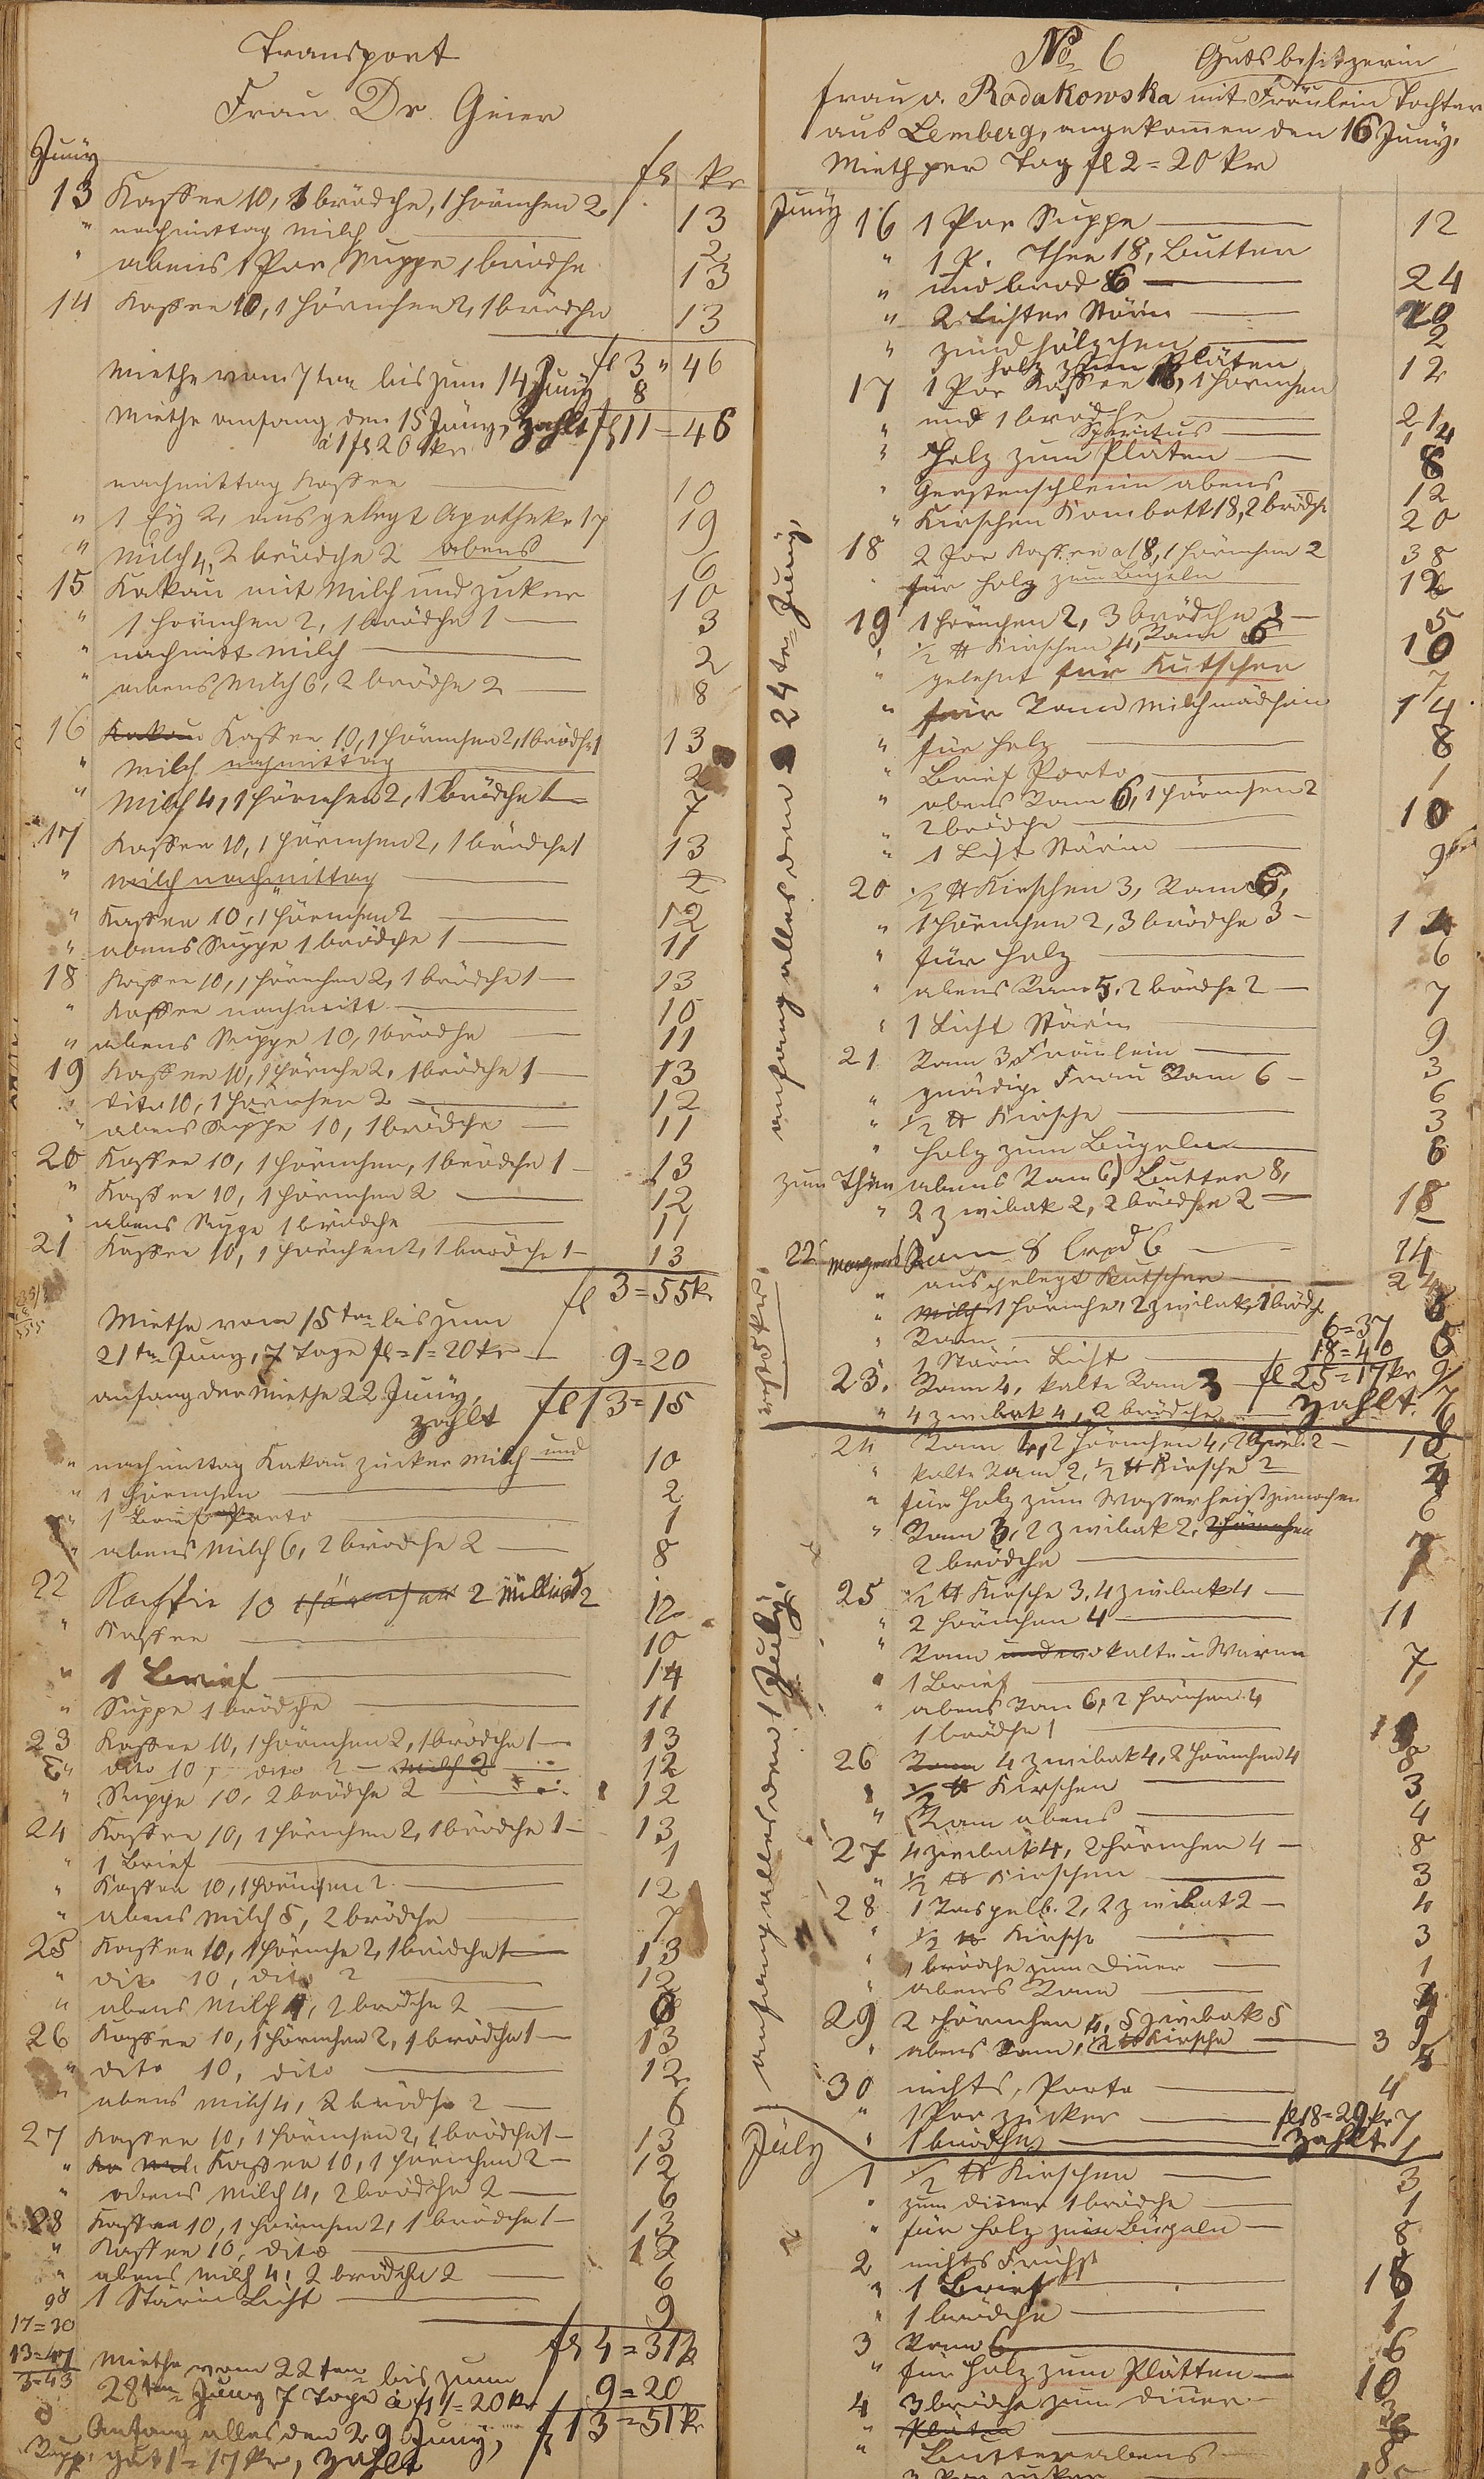 Transport
Frau Dr. Geier
Juny
fl kr
13 Kaffee 10, 1 brödche, 1 hörnchen 2 13
" nachmittag Milch 2
" abens 1 Por Suppe 1 brödche 13
14 Kaffee 10, 1 hörnchen 2, 1 brödche 13
fl 3 " 46
Miethe vom 7ten bis zum 14 Juny 8
Miethe anfang den 15 Juny, zahlt fl 11 = 46
à 1 fl 20 kr
nachmittag Kaffee 10
" 1 Ey 2, ausgelegt Apotheke 17 19
" Milch 4, 2 brödche 2 abens 6
15 Kakau mit Milch und zuker 10
" 1 hörnchen 2, 1 brödche 1 3
" nachmitt Milch 2
" abens Milch 6, 2 brödche 2 8
16 Kakau Kaffee 10, 1 hörnchen 2, 1 brödche 1 13
" Milch nachmittag 2
" Milch 4, 1 hörnchen 2, 1 brödche 1 7
17 Kaffee 10, 1 hörnchen 2, 1 brödche 1 13
" Milch nachmittag 2
" Kaffee 10, 1 hörnchen 2 12
" abens Suppe 1 brödche 1 11
18 Kaffee 10, 1 hörnchen 2, 1 brödche 1 13
" Kaffee nachmitt 10
" abens Suppe 10, 1 brödche 11
19 Kaffee 10, 1 hörnche 2, 1 brödche 1 13
" dito 10, 1 hörnchen 2 12
" abens Suppe 10, 1 brödche 11
20 Kaffee 10, 1 hörnchen, 1 brödche 1 13
" Kaffee 10, 1 hörnchen 2 12
" abens Suppe 1 brödche 11
21 Kaffee 10, 1 hörnchen 2, 1 brödche 1 13
fl 3 = 55 kr
Miethe vom 15ten bis zum
21ten Juny, 7 Tage fl = 1 = 20 kr 9 = 20
anfang der Miethe 22 Juny,
zahlt fl 13 = 15
" nachmittag Kakau zucker Milch und 10
" 1 hörnchen 2
" 1 Brief Porto 1
" abens Milch 6, 2 brödche 2 8
22 Kaffee 10 2 2 12
" Kaffee 10
" 1 Brief 14
" Suppe 1 brödche 11
23 Kaffee 10, 1 hörnchen 2, 1 brödche 1 13
" dito 10, dito 2 Milch 2 12
" Suppe 10, 2 brödche 2 12
24 Kaffee 10, 1 hörnchen 2, 1 brödche 1 13
" 1 Brief 1
" Kaffee 10, 1 hörnchen 2 12
" abens Milch 5, 2 brödche 7
25 Kaffee 10, 1 hörnche 2, 1 brödche 1 13
" dito 10, dito 2 12
" abens Milch 4, 2 brödche 2 6
26 Kaffee 10, 1 hörnchen 2, 1 brödche 1 13
" dito 10, dito 12
" abens Milch 4, 2 brödche 2 6
27 Kaffee 10, 1 hörnchen 2, 1 brödche 1 13
" Kaffee 10, 1 hörnchen 2 12
" abens Milch 4, 2 brödche 2 6
28 Kaffee 10, 1 hörnchen 2, 1 brödche 1 13
" Kaffee 10, dito 12
" abens Milch 4, 2 brödche 2 6
1 Starin Licht 9
17 = 30
13 = 47
3 = 43
fl 4 = 31 k
Miethe vom 22ten bis zum
28ten Juny 7 Tage à fl 1 = 20 kr 9 = 20
Anfang alles den 29 Juny, fl 13 = 51 kr
gut 1 = 17 kr, zahlt
No 6 Gutsbesitzerin
Frau v. Rodakowska mit Fräulein Tochter
aus Lemberg, angekomen den 16 Juny,
Mieth per Tag fl 2 = 20 kr
Juny 16 1 Por Suppe 12
" 1 P. Thee 18, Butter
" und brod 6 24
" 2 Lichter Stärin 20
" zündhölzchen 2
holz zum Pläten 12
17 1 Por Kaffee 18, 1 hörnchen
" und 1 brödche 21
Spiritus 4
" holz zum Pläten 8
" Gerstenschleim abens 12
" Kirschen Kombott 18, 2 brödche 20
18 2 Por Kaffee a 18, 1 hörnchen 2 38
" für holz zum Bügeln 12
19 1 hörnchen 2, 3 brödche 3 5
" 1/2 ℔ Kirschen 4, Ram 6 10
" gelehnt für Kutscher 7
" für Ram Milchmädchen 14
" für holz 8
" Brief Porto 1
" abens Ram 6, 1 hörnchen 2
2 brödche 10
" 1 Licht Stärin 9
20 1/2 ℔ Kirschen 3, Ram 6,
" 1 hörnchen 2, 3 brödche 3 14
" für holz 6
" abens Ram 5, 2 brödche 2 7
" 1 Licht Stärin 9
21 Ram 3 Fräulein 3
" gnädige Frau Ram 6 6
" 1/2 ℔ Kirsche 3
" holz zum Bügeln 6
zum Thee abens Ram 6, Butter 8,
" 2 zwibak 2, 2 brödche 2 18
22 morgens Ram 8 6 14
" ausgelegt Kutscher 24
" Milch 1 hörnche, 2 zwibak, 1 brödche 5
" Ram 6 = 37 6
" 1 Stärin Licht 18 = 40 9
23. Ram 4, kalte Ram 3 fl 25 = 17 kr 7
" 4 zwibak 4, 2 brödche zahlt. 6
anfang alles den 24te Juny,
24 Ram 4, 2 hörnchen 4, 2 zwib. 2
" kalte Ram 2, 1/2 ℔ Kirsche 2
" für Holz zum Wasser heiß zumachen 6
" Ram 3, 2 zwibak 2, 2 hörnchen
2 brödche 7
25 1/2 ℔ Kirsche 3, 4 zwibak 4
" 2 hörnchen 4 11
" Ram kalte u Warme 7
" 1 Brief 1
" abens Ram 6, 2 hörnchen 4
1 brödche 1
26 Ram 4 zwibak 4, 2 hörnchen 4 8
" 1/2 ℔ Kirschen 3
" Ram abens 4
27 4 zwibak 4, 2 hörnchen 4 8
" 1/2 ℔ Kirschen 3
28 1 2, 2 zwibak 2 4
" 1/2 ℔ Kirsche 3
" 1 brödche zum Diner 1
" abens Ram
29 2 hörnchen 4, 5 zwibak 5 9
" abens Ram, 1/2 ℔ Kirsche 3
30 nichts, Porto 4
" 1 Por zucker fl 18 = 29 kr 7
" 1 brödche zahlt 1
anfang alles den 1 July,
July
1 1/2 ℔ Kirschen 3
" zum diner 1 brödche 1
" für holz zum Bügeln 8
2 nichts Frühst
" 1 Brief 15
" 1 brödche 1
3 Ram 6 6
" für holz zum Plätten 10
4 3 brödche zum diner 3
" Pläten
" Butter abens 8